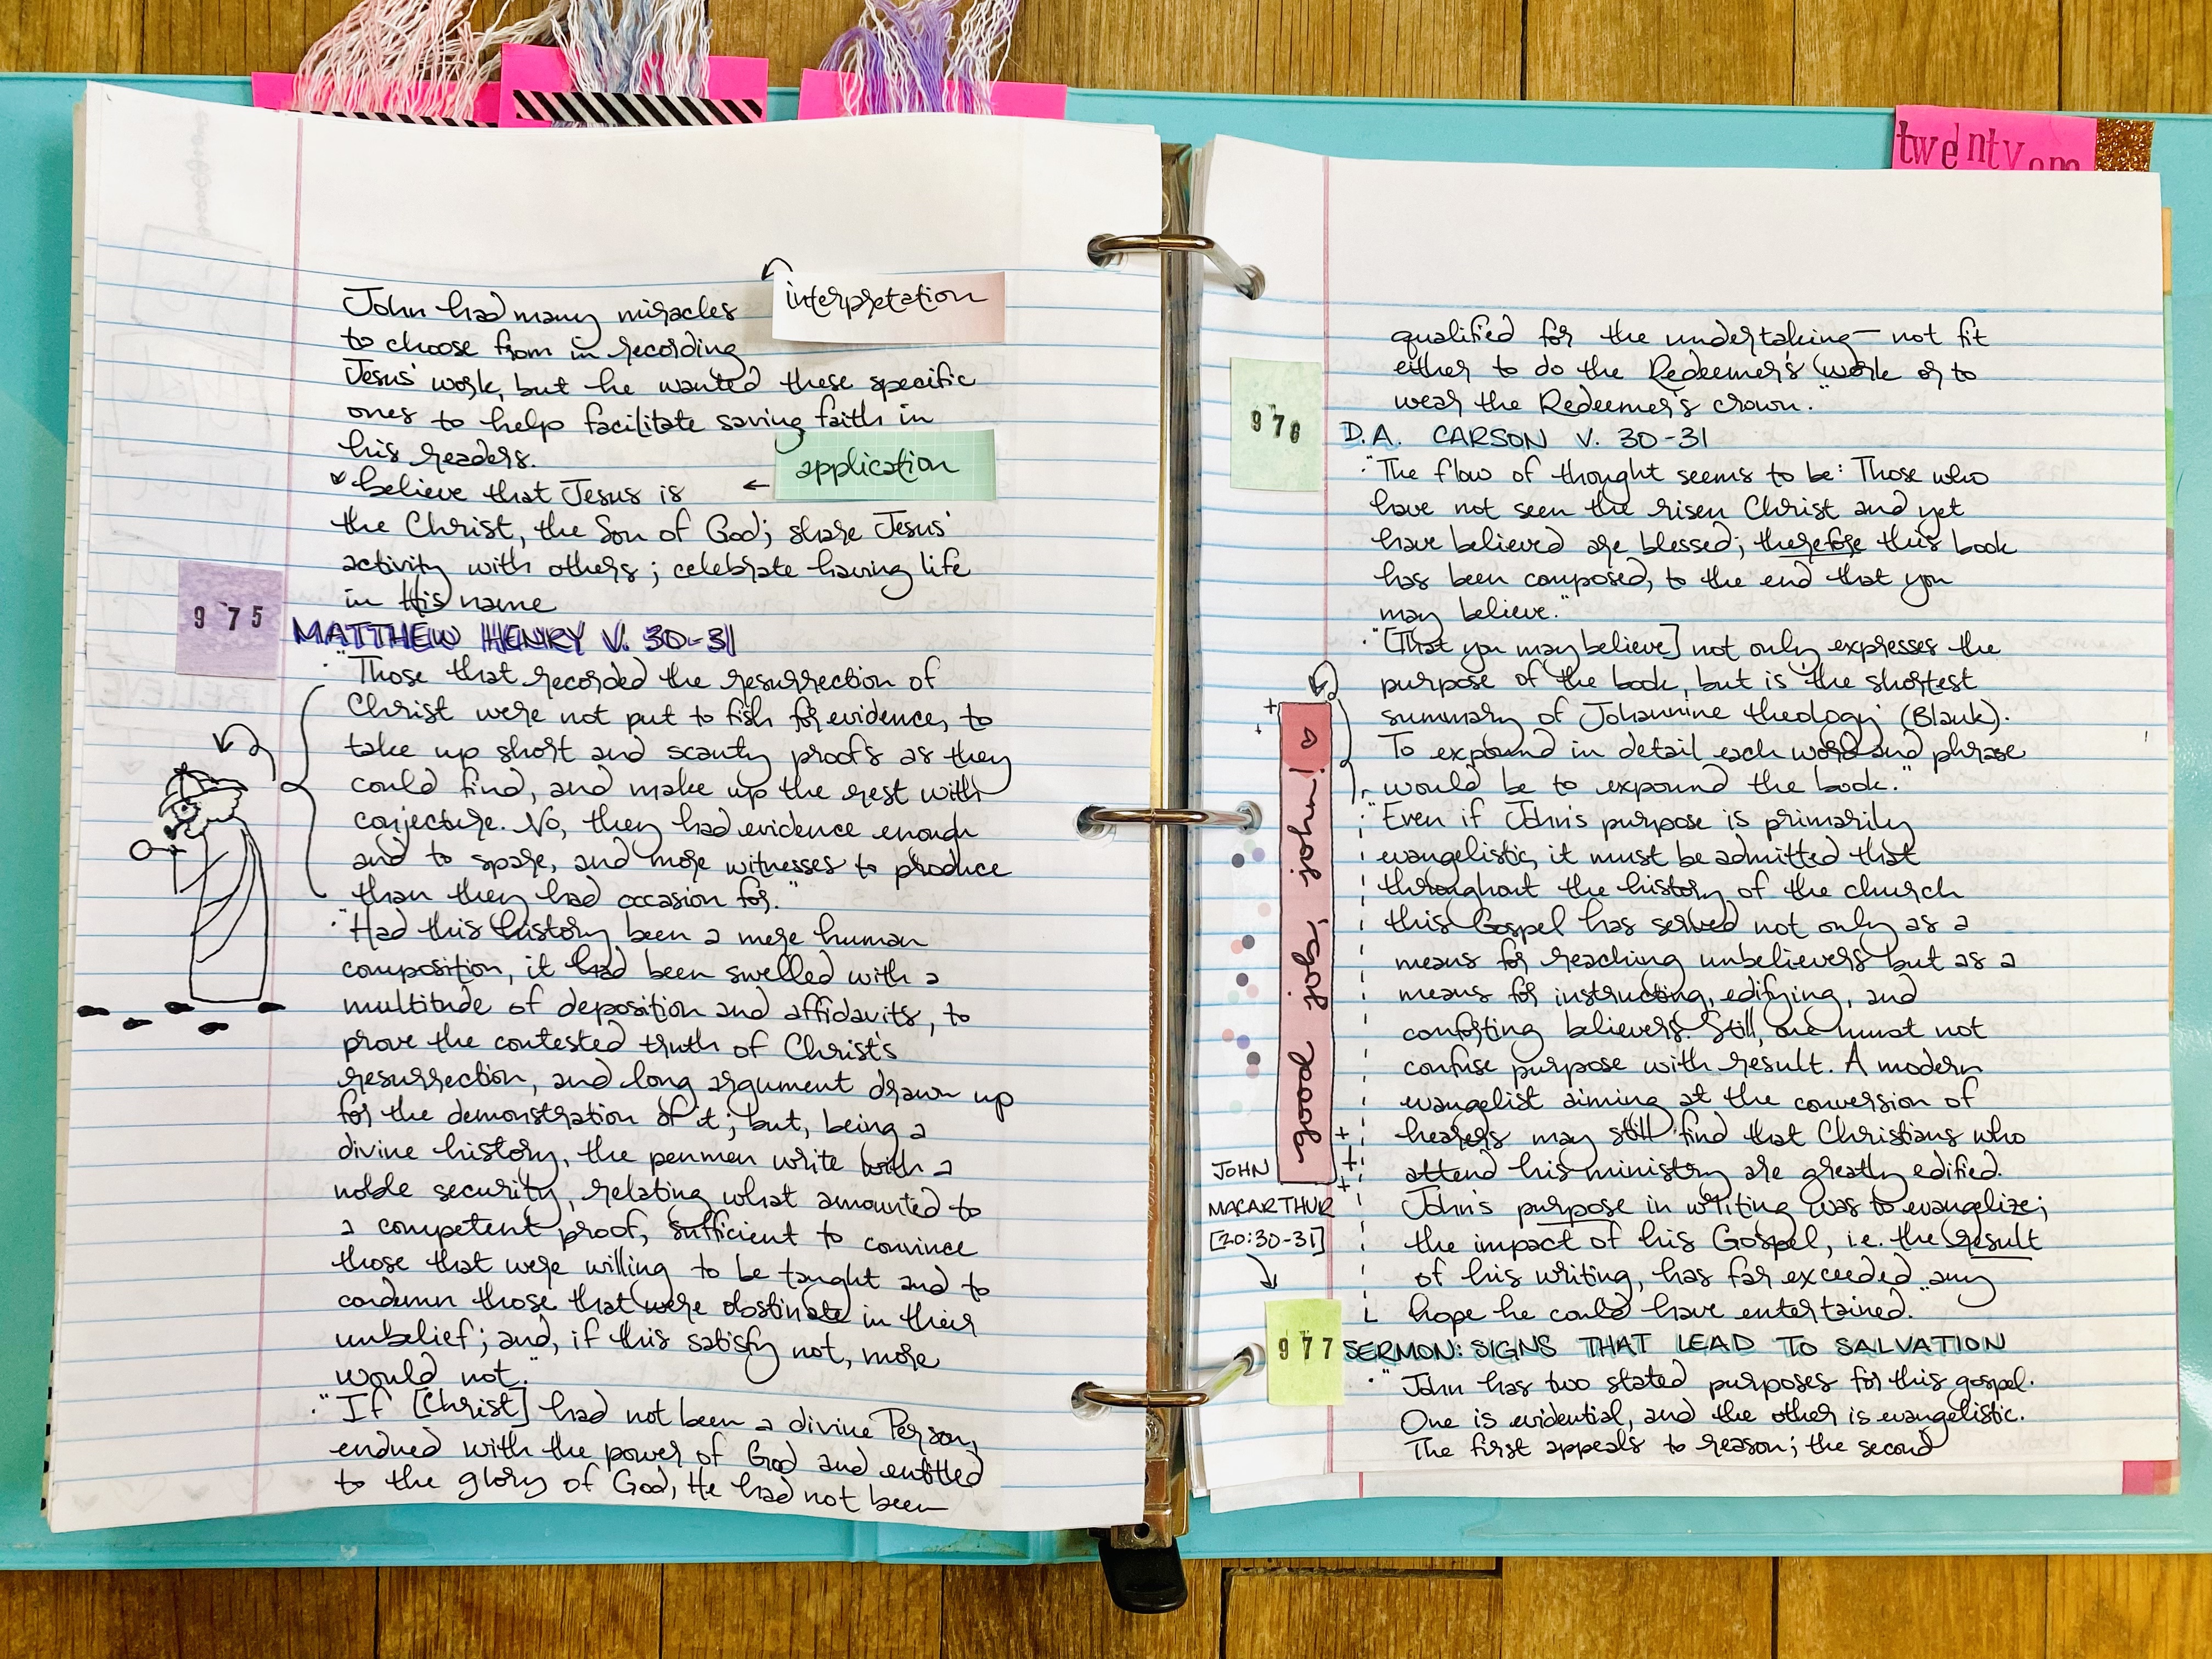 twenty one
John had many miracles
interpretation
to choose from in recording
Jesus' work, but he wanted these specific
ones to help facilitate saving faith in
his readers.
application
believe that Jesus is
the Christ, the Son of God; share Jesus'
activity with others; celebrate having life
in His name
975
MATTHEW HENRY V. 30-31
· "Those that recorded the resurrection of
Christ were not put to fish for evidence, to
take up short and scanty proofs as they
could find, and make up the rest with
conjecture. No, they had evidence enough
and to spare, and more witnesses to produce
than they had occasion for."
· "Had this history been a mere human
composition, it had been swelled with a
multitude of deposition and affidavits, to
prove the contested truth of Christ's
resurrection, and long argument drawn up
for the demonstration of it; but, being a
divine history, the penmen write with a
noble security, relating what amounted to
a competent proof, sufficient to convince
those that were willing to be taught and to
condemn those that were obstinate in their
unbelief; and, if this satisfy not, more
would not."
· "If [Christ] had not been a divine Person,
endued with the power of God and entitled
to the glory of God, He had not been
qualified for the undertaking— not fit
either to do the Redeemer's work or to
wear the Redeemer's crown."
976
D.A. CARSON V. 30-31
· "The flow of thought seems to be: Those who
have not seen the risen Christ and yet
have believed are blessed; therefore this book
has been composed, to the end that you
may believe."
· "[That you may believe] not only expresses the
purpose of the book, but is 'the shortest
summary of Johannine theology' (Blank).
To expound in detail each word and phrase
would be to expound the book."
good job, john!
· "Even if John's purpose is primarily
evangelistic, it must be admitted that
throughout the history of the church
this Gospel has served not only as a
means for reaching unbelievers but as a
means for instructing, edifying, and
conforting believers. Still, one must not
confuse purpose with result. A modern
evangelist aiming at the conversion of
hearers may still find that Christians who
attend his ministry are greatly edified.
John's purpose in writing was to evangelize;
the impact of his Gospel, i.e. the result
of his writing, has far exceeded any
hope he could have entertained."
JOHN
MACARTHUR
[20:30-31]
977
SERMON: SIGNS THAT LEAD TO SALVATION
· "John has two stated purposes for this gospel.
One is evidential, and the other is evangelistic.
The first appeals to reason; the second